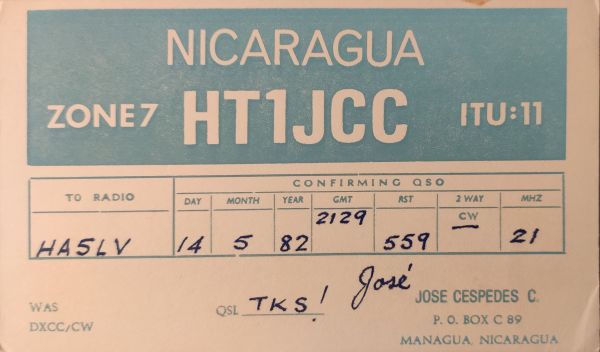 NICARAGUA
ZONE 7 HT1JCC ITU:11
CONFIRMING QSO
TO RADIO DAY MONTH YEAR GMT RST 2 WAY MHZ
2129 CW
HA5LV 14 5 82 559 21
José
WAS QSL TKS! JOSE CESPEDES C.
DXCC/CW P. O. BOX C 89
MANAGUA, NICARAGUA